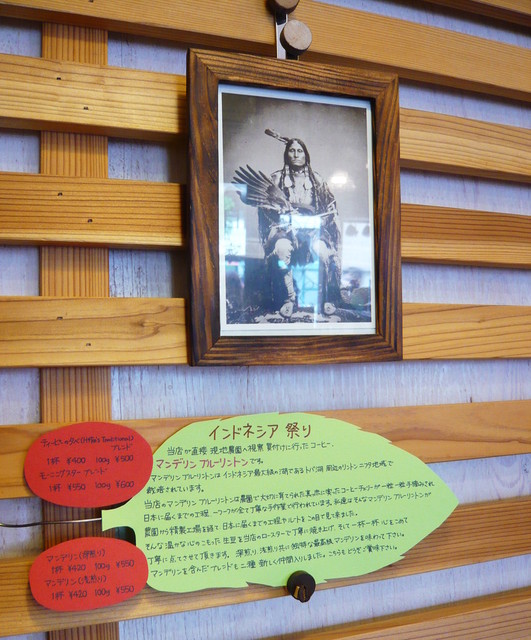 インドネシア 祭り
当店が直接 現地農園へ視察 買付けに行ったコーヒー、
マンデリン ブルーリントンです。
マンデリンブルーリントンはインドネシア最大級の湖であるトバ湖 周辺のリントンニフタ地域で
栽培されています。
当店のマンデリン ブルーリントンは農園で大切に育てられた真っ赤に実ったコーヒーチェリーが一粒一粒手摘みされ
日本に届くまでの工程 一つ一つが全て丁寧な手作業で行われています。私達はそんなマンデリンブルーリントンが
農園から精製工場を経て 日本に届くまでの工程
そんな温かな心のこもった 生豆を当店のロースターで丁寧に焼き上げ、そして一杯一杯 心をこめて
丁寧に点てさせて頂きます。深煎り 浅煎り共に独特な最高級マンデリンを味わって下さい。
マンデリンを含んだブレンドも二種 新しく仲間入りしました。こちらも どうぞご賞味下さい。
ブレンド
1杯 ¥400 100g ¥500
モーニングスター ブレンド
1杯 ¥550 100g ¥600
マンデリン(深煎り)
1杯 ¥420 100g ¥550
マンデリン(浅煎り)
1杯 ¥420 100g ¥550